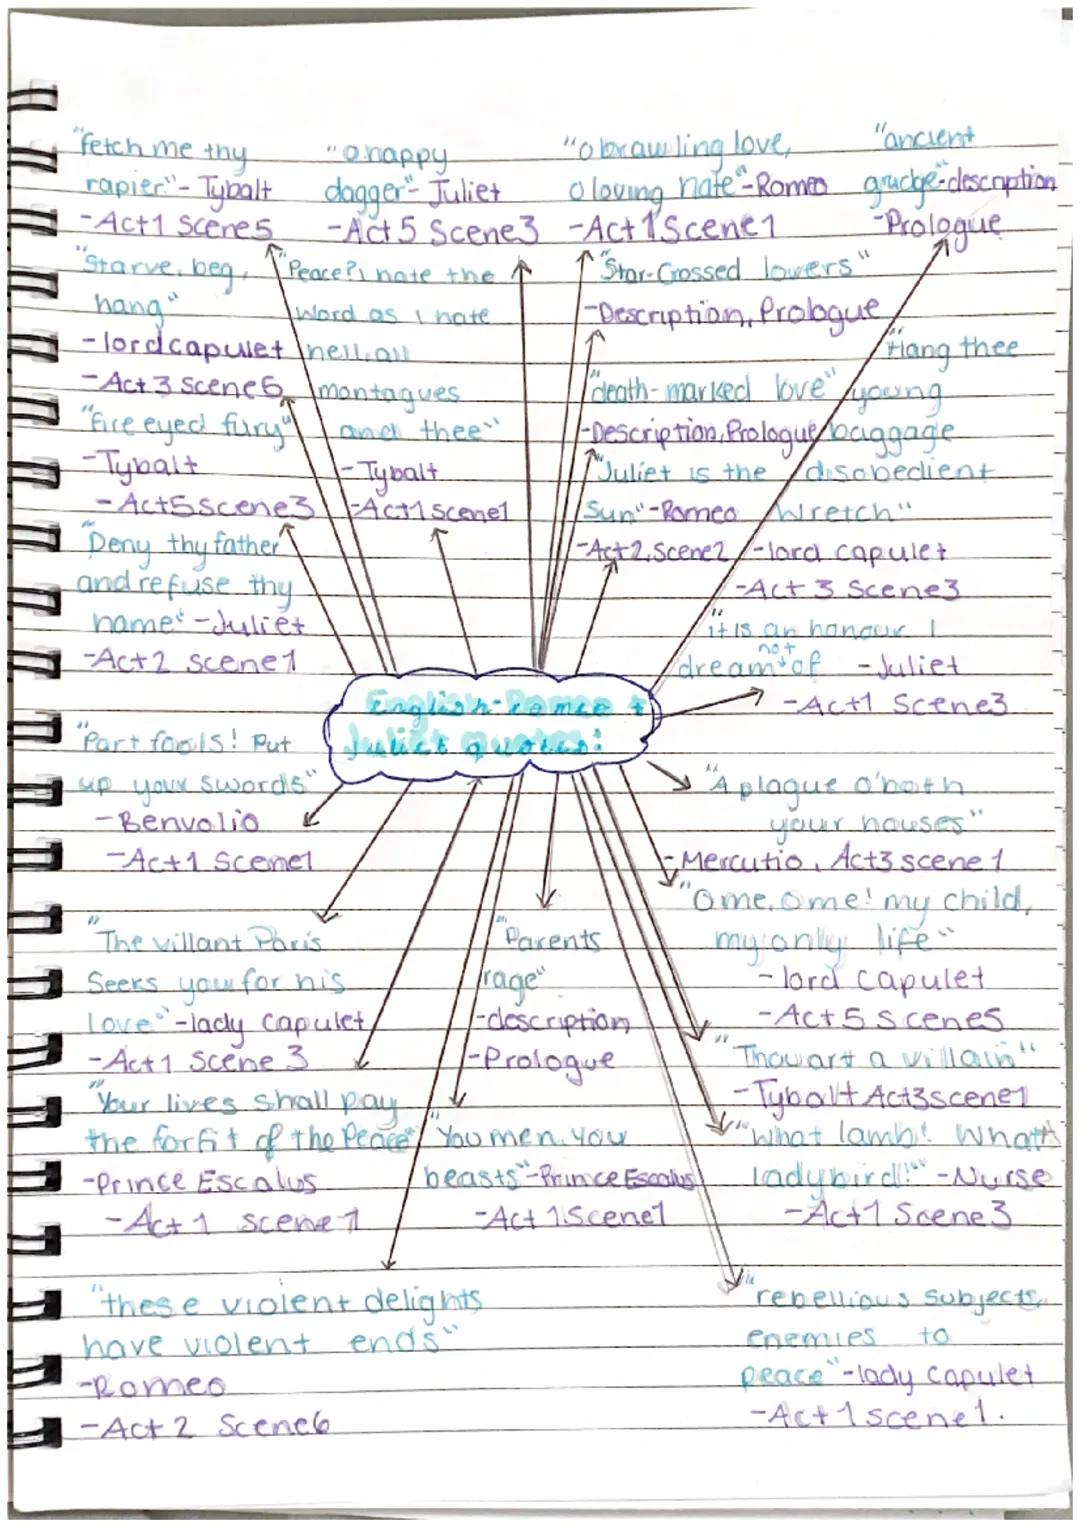 "fetch me thy
rapier"- Tybalt
-Act1 Scene5
"o happy
dagger"- Juliet
-Act 5 Scene3
"o brawling love,
o loving hate"-Romeo
-Act 1 Scene1
"ancient
grudge-description
-Prologue
"Starve, beg,
hang"
-lord capulet
-Act 3 scene5
"Peace? I hate the
word as I hate
hell, all
montagues
and thee"
-Tybalt
-Act1 scene1
"Star-Crossed lovers"
-Description, Prologue
"death-marked love"
-Description, Prologue
"Hang thee
young
baggage
disobedient
wretch"
-lord capulet
-Act 3 Scene3
"fire eyed fury"
-Tybalt
-Act5 scene3
"Juliet is the
Sun"-Romeo
-Act 2, Scene2
"Deny thy father
and refuse thy
name" -Juliet
-Act2 scene1
"it is an honour I
dream not of -Juliet
-Act1 Scene3
English-Romeo +
Juliet quotes:
"Part fools! Put
up your swords"
-Benvolio
-Act1 Scene1
"A plague o'both
your houses"
-Mercutio, Act3 scene 1
"O me, O me! my child,
my only life"
-lord Capulet
-Act 5 scene5
"The villant Paris
Seeks you for his
love"-lady Capulet
-Act1 Scene 3
"Parents
rage"
-description
-Prologue
"Thou art a villain"
-Tybalt Act3scene1
"Your lives shall pay
the forfit of the Peace"
-Prince Escalus
-Act 1 scene 1
"You men, you
beasts"-Prince Escalus
-Act 1.Scene1
"What lamb! What
ladybird!" -Nurse
-Act1 Scene3
"these violent delights
have violent ends"
-Romeo
-Act 2 Scene6
"rebellious subjects,
enemies to
peace"-lady Capulet
-Act 1 scene1.